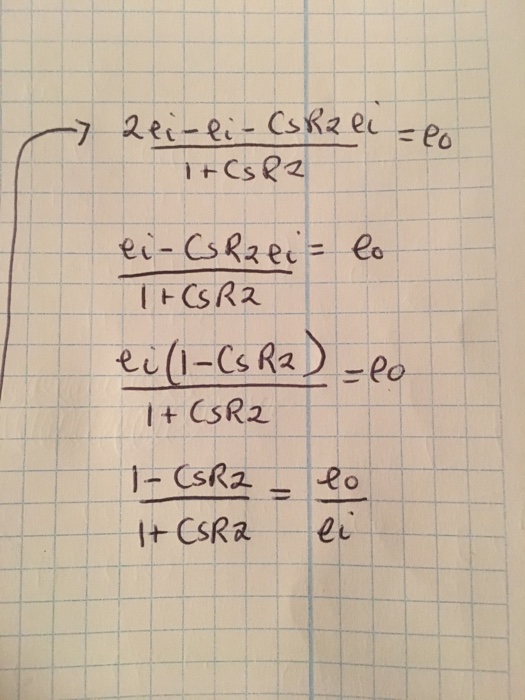 → 2ei-ei-CsR2ei = eo
1+CsR2
ei-CsR2ei = eo
1+CsR2
ei(1-CsR2) = eo
1+CsR2
1-CsR2 = eo
1+CsR2 ei